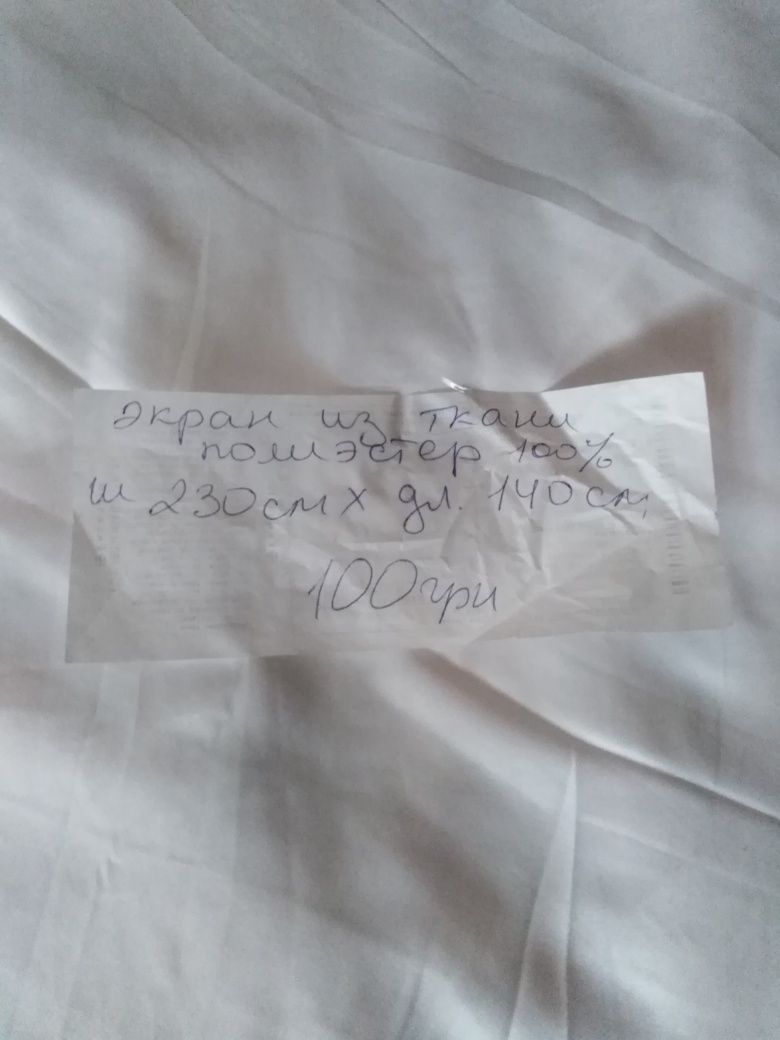 экран из ткани
полиэстер 100%
ш 230см х дл. 140см
100грн